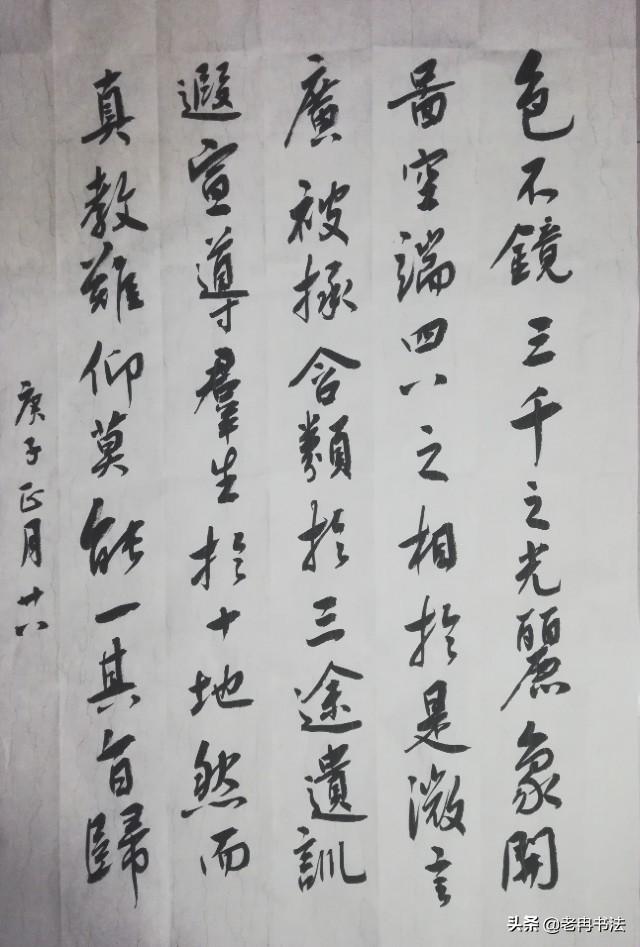 色不鏡三千之光麗象開
啚空端四八之相於是微言
廣被拯含類於三途遺訓
遐宣導羣生於十地然而
真教難仰莫能一其旨歸
庚子正月廿八
头条 @老冉书法